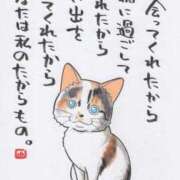 会ってくれたから
に過ごして
れたから
出を
てくれたから
たは私のたからもの。